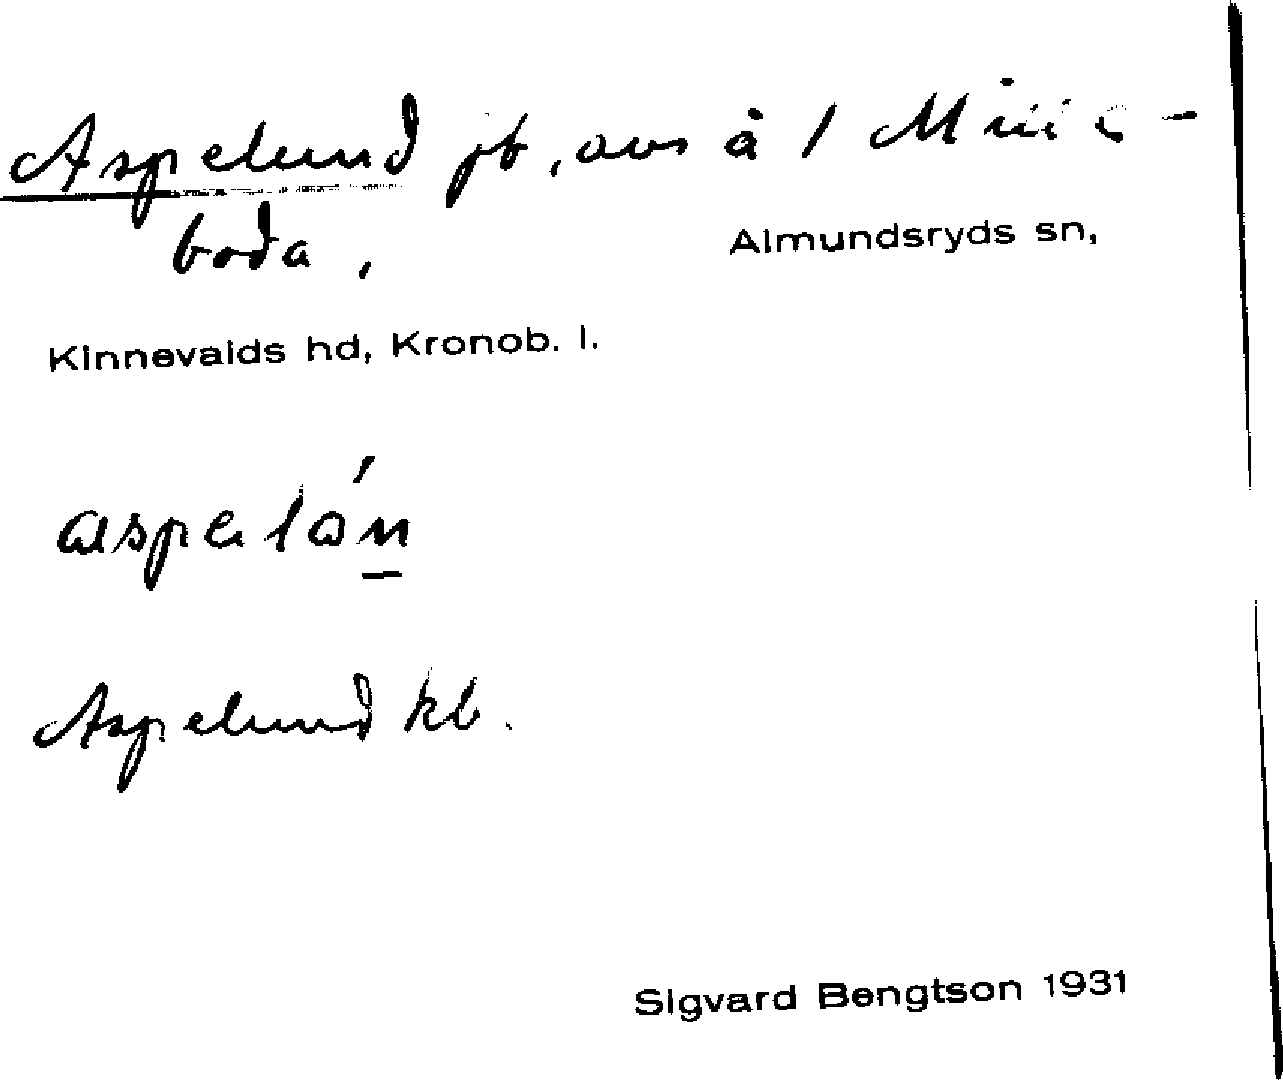 Aspelund jb, avs å 1
boda,
Almundsryds sn,
Kinnevalds hd, Kronob. l.
Aspelund kb.
Sigvard Bengtson 1931